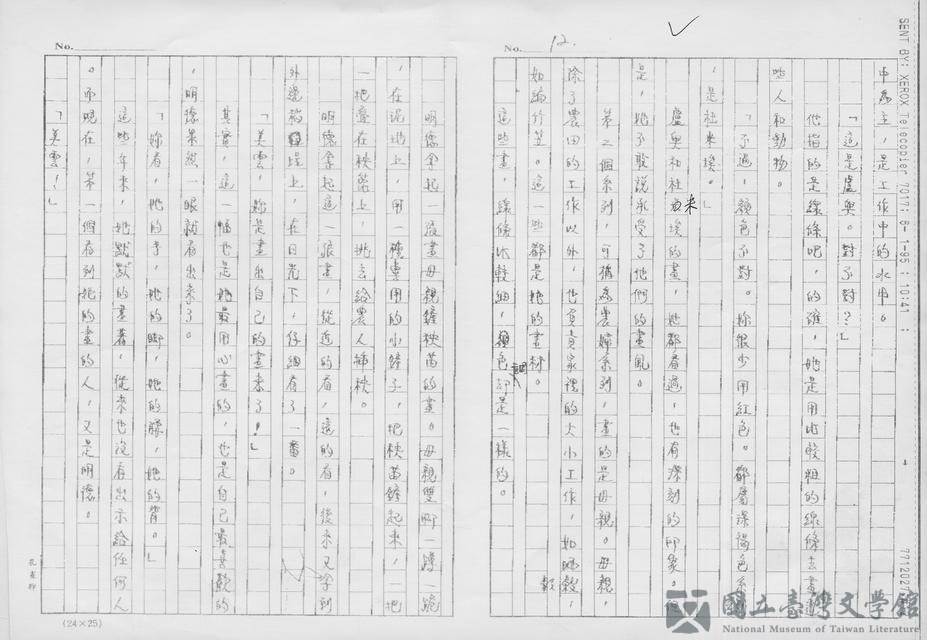 No. 12.
SENT BY: XEROX Telecopier 7017; 8- 1-95 ; 10:41 ;
7712027
中為主，是工作中的水牛。
「這是盧奧。對不對？」
他指的是線條吧，的確，她是用比較粗的線條去畫這
些人和動物。
「不過，顏色不對。妳很少用紅色。都屬深褐色系
，是杜米埃。」
盧奧和杜米埃的畫，她都看過，也有深刻的印象。但
是，她不敢說承受了他們的畫風。
第二個系列，可稱為農婦系列，畫的是母親。母親，
除了農田的工作以外，也負責家裡的大小工作，如曬穀，
如論竹笠。這一些都是她的畫材。
這些畫，線條比較細，色調卻是一樣的。
No.
明德拿起一張畫母親鏟秧苗的畫。母親雙腳一蹲一跪
，在泥地上，用一種專用的小鏟子，把秧苗鏟起來，一把
一把疊在秧簍上，挑去給農人插秧。
明德拿起這一張畫，從近的看，遠的看，後來又拿到
外邊稻埕上，在日光下，仔細看了一番。
「美雲，妳是畫出自己的畫來了！」
其實，這一幅也是她最用心畫的，也是自己最喜歡的
，明德果然一眼就看出來了。
「妳看，她的手，她的腳，她的膝，她的背。」
這些年來，她默默的畫著，從來也沒有出示給任何人
。而現在，第一個看到她的畫的人，又是明德。
「美雲！」
(24×25)
國立臺灣文學館
National Museum of Taiwan Literature